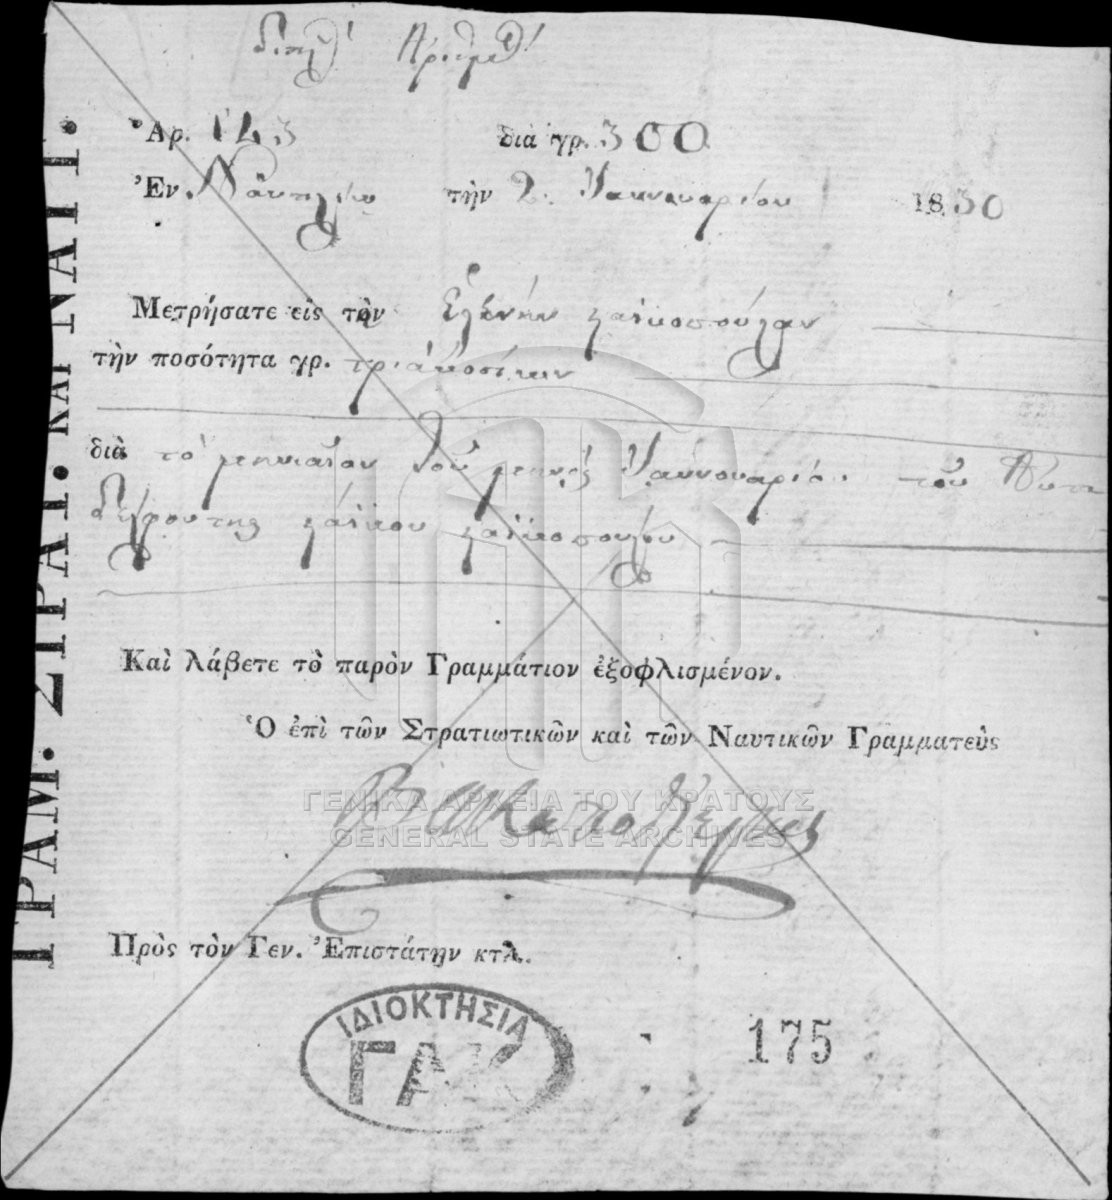 Διπλ' Αριθμ'
Ἀρ. 123 διὰ γρ. 300
Ἐν. Ναυπλίω τὴν 2. Ἰαννουαρίου 1830
Μετρήσατε εἰς τὸν Ἑλένην
τὴν ποσότητα γρ. τριακοσίων
διὰ τὸ μηνιαῖον τοῦ μηνὸς Ἰαννουαρίου τοῦ
Καὶ λάβετε τὸ παρὸν Γραμμάτιον ἐξοφλισμένον.
Ὁ ἐπὶ τῶν Στρατιωτικῶν καὶ τῶν Ναυτικῶν Γραμματεὺς
ΓΕΝΙΚΑ ΑΡΧΕΙΑ ΤΟΥ ΚΡΑΤΟΥΣ
GENERAL STATE ARCHIVES
Πρὸς τὸν Γεν. Ἐπιστάτην κτλ.
ΙΔΙΟΚΤΗΣΙΑ
ΓΑΚ
175
ΓΡΑΜ. ΣΤΡΑΤ. ΚΑΙ ΝΑΥΤ.